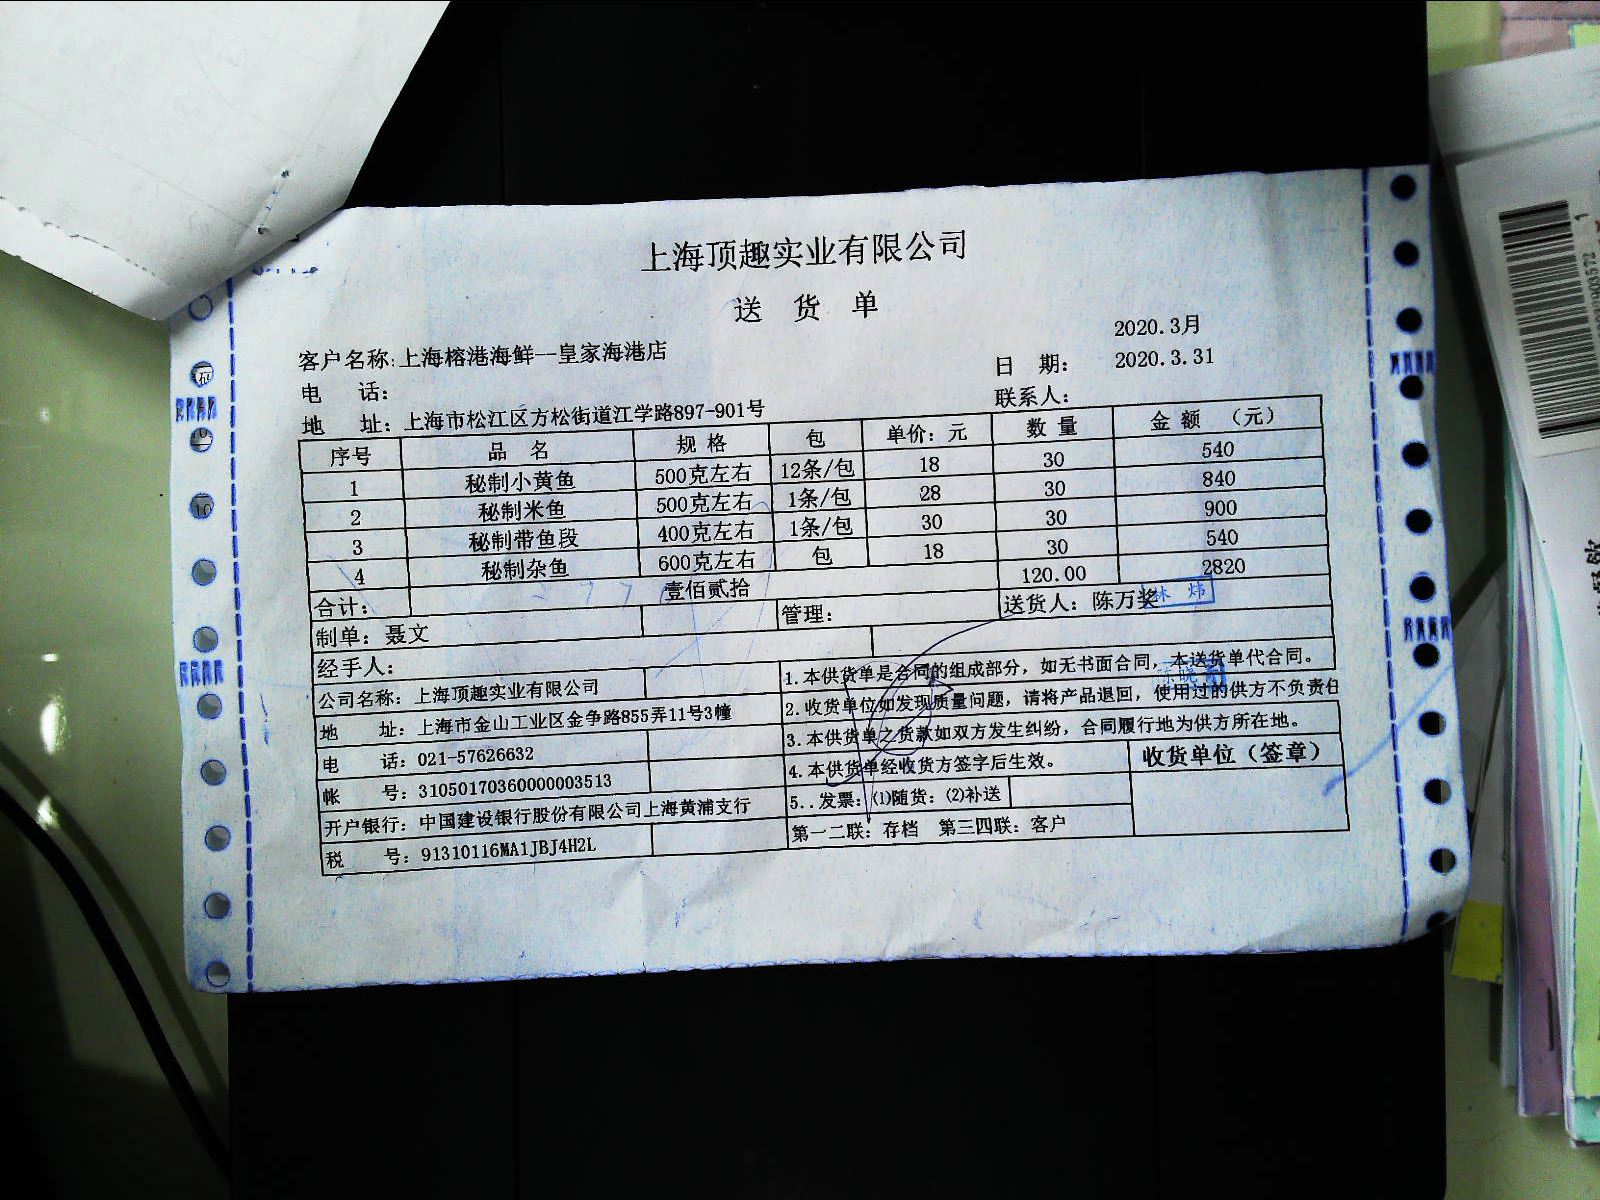 上海顶趣实业有限公司
送 货 单
2020.3月
客户名称:上海榕港海鲜--皇家海港店
日 期： 2020.3.31
电 话：
联系人：
地 址：上海市松江区方松街道江学路897-901号
序号 品 名 规 格 包 单价：元 数 量 金 额 （元）
1 秘制小黄鱼 500克左右 12条/包 18 30 540
2 秘制米鱼 500克左右 1条/包 28 30 840
3 秘制带鱼段 400克左右 1条/包 30 30 900
4 秘制杂鱼 600克左右 包 18 30 540
合计： 壹佰贰拾 120.00 2820
制单：聂文 管理： 送货人：陈万奖
林 炜
经手人：
公司名称：上海顶趣实业有限公司 1.本供货单是合同的组成部分，如无书面合同，本送货单代合同。
地 址：上海市金山工业区金争路855弄11号3幢 2.收货单位如发现质量问题，请将产品退回，使用过的供方不负责任
电 话：021-57626632 3.本供货单之货款如双方发生纠纷，合同履行地为供方所在地。
帐 号：31050170360000003513 4.本供货单经收货方签字后生效。 收货单位（签章）
开户银行：中国建设银行股份有限公司上海黄浦支行 5..发票：⑴随货：⑵补送
税 号：91310116MA1JBJ4H2L 第一二联：存档 第三四联：客户